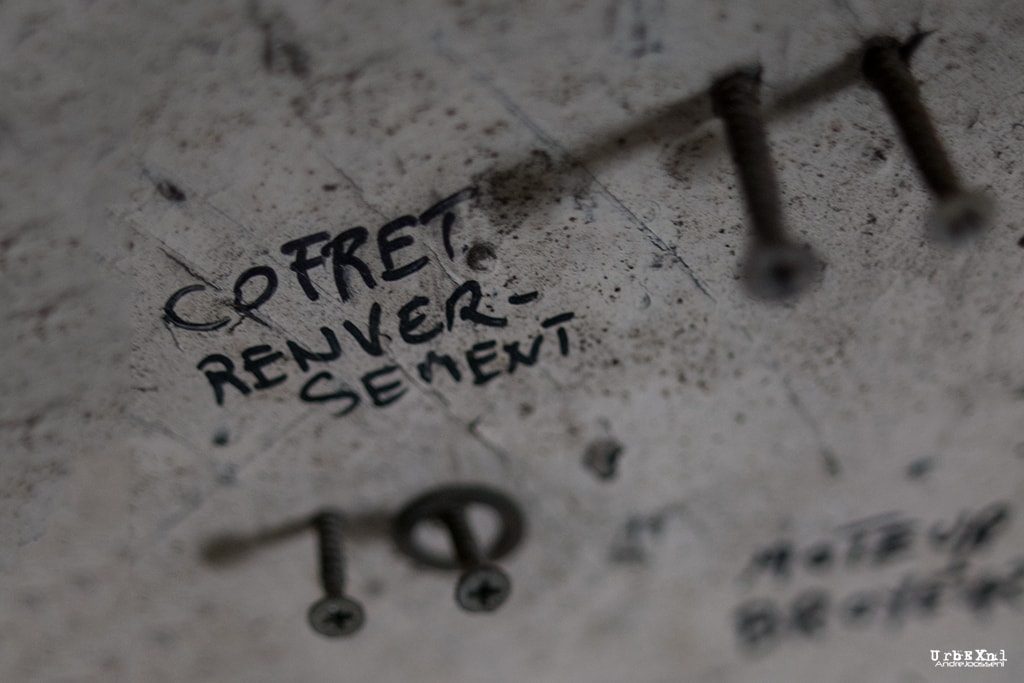 COFRET
RENVER-
SEMENT
MOTEUR
UrbEXnl
AndreJoosseni